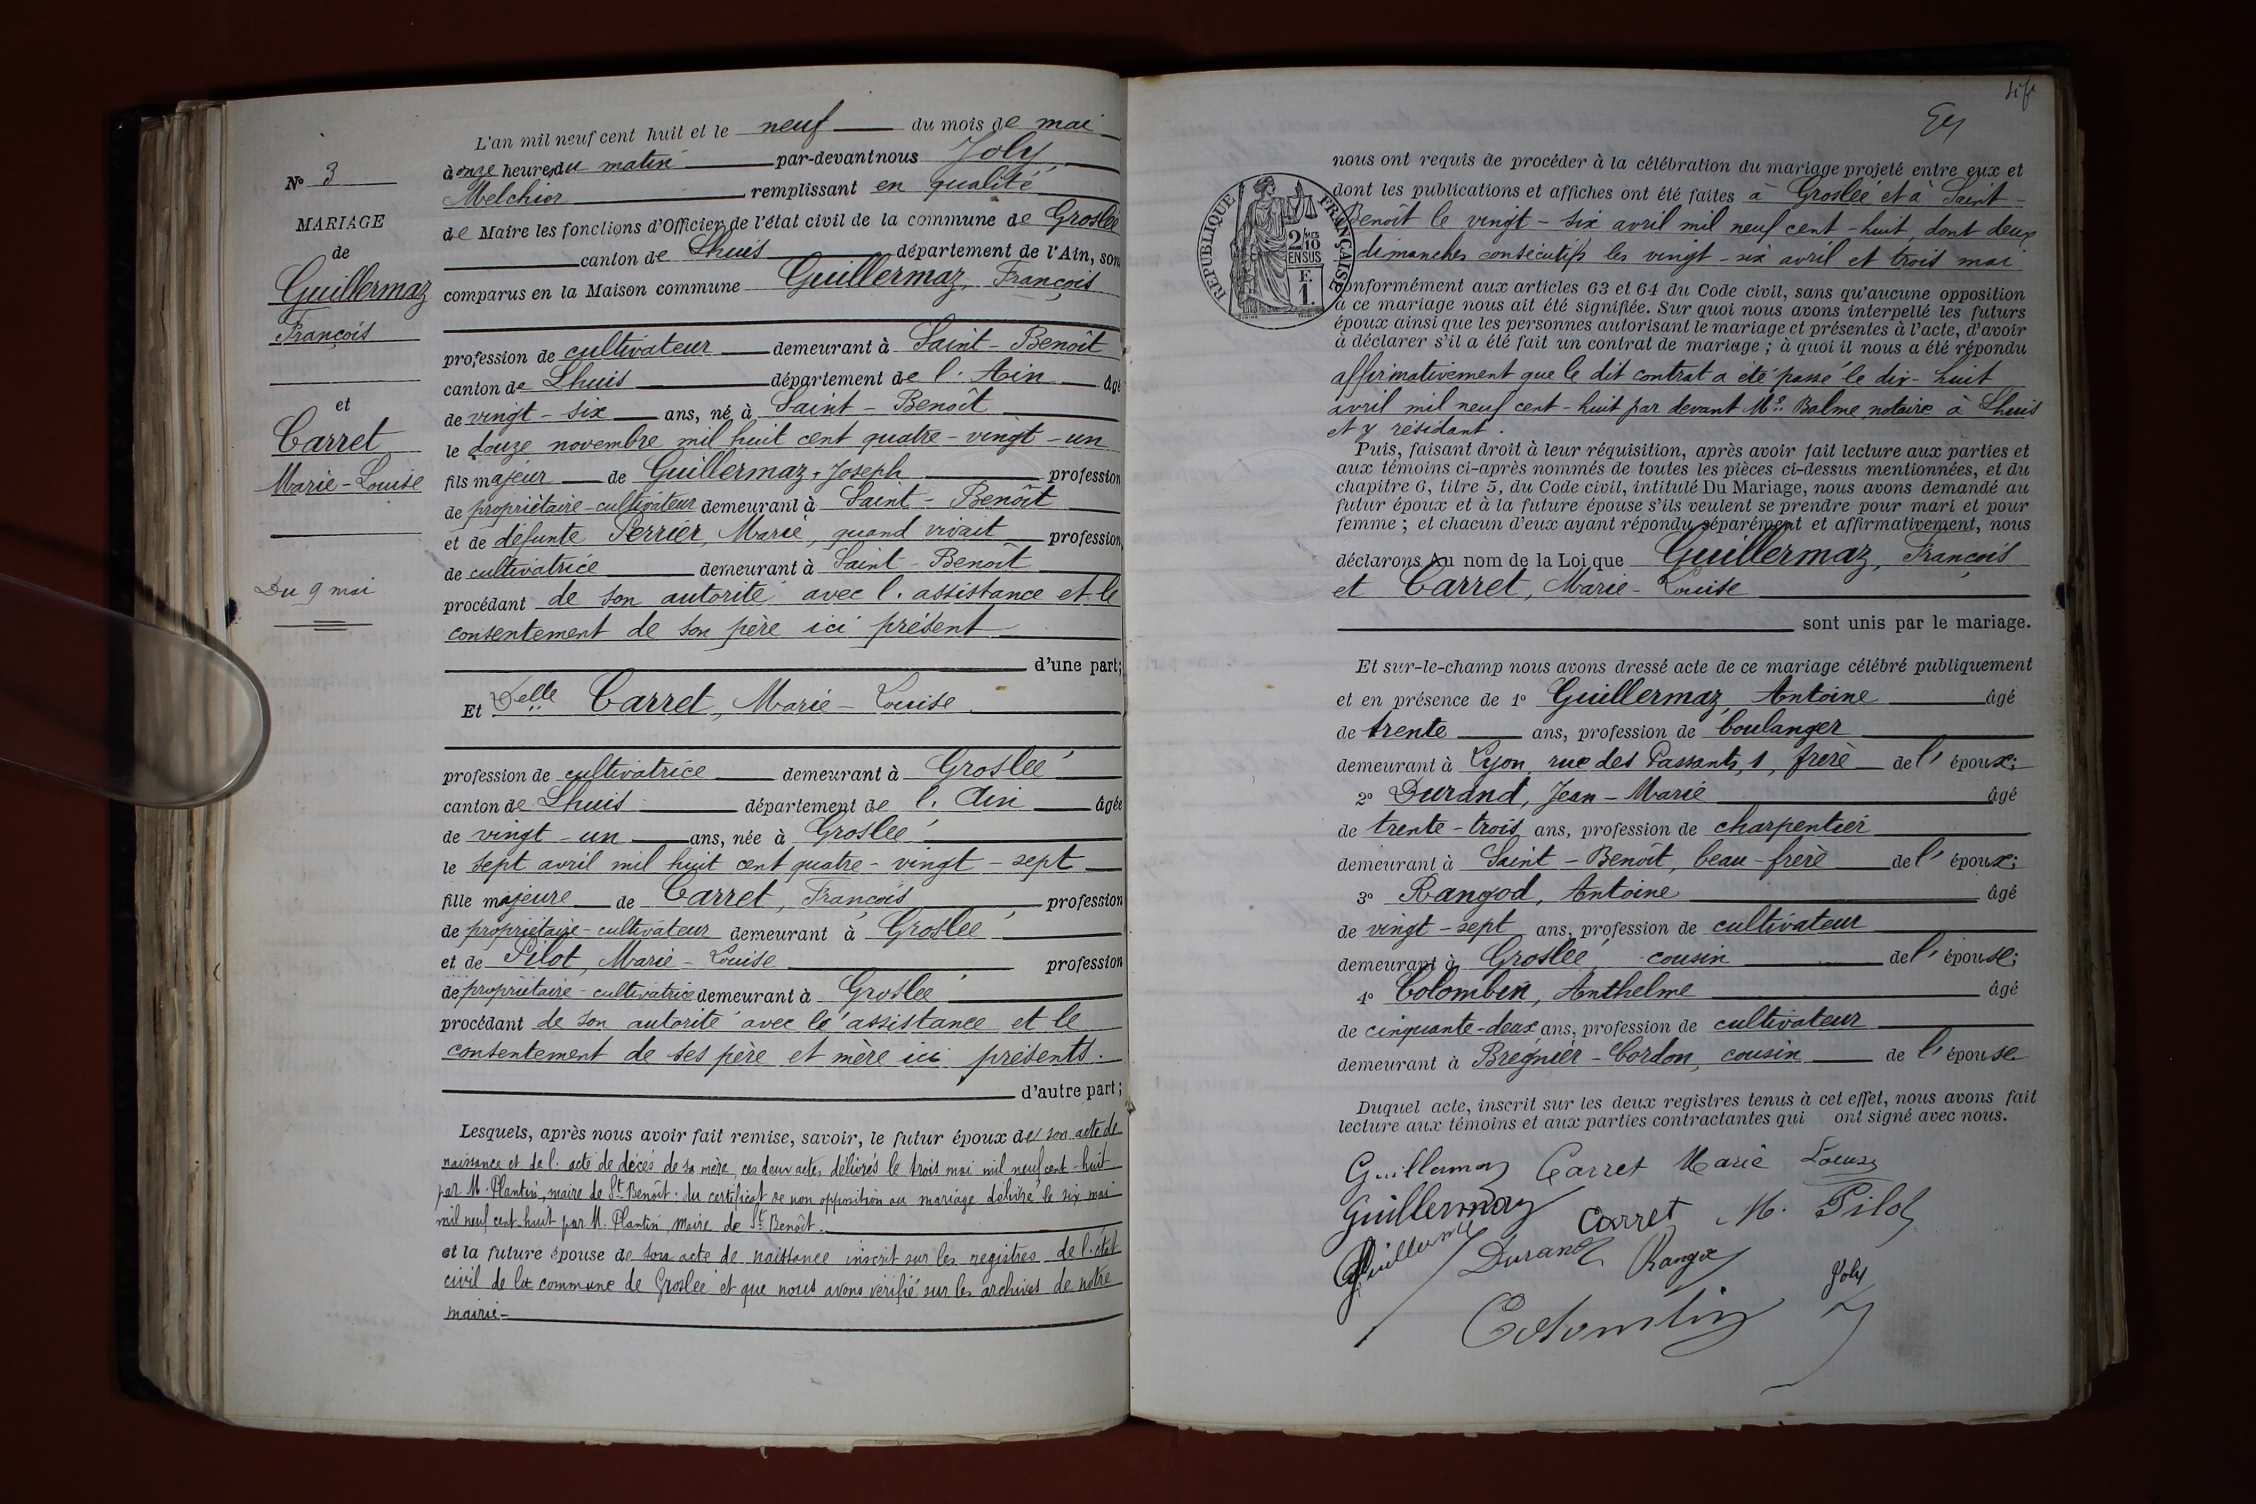 N° 3
MARIAGE
de
Guillermaz
François
et
Carret
Marie-Louise
Du 9 mai
L'an mil neuf cent huit et le neuf du mois de mai
à onze heures du matin par-devant nous Joly
Melchior remplissant en qualité
de Maire les fonctions d'Officier de l'état civil de la commune de Groslée
canton de Lhuis département de l'Ain, sont
comparus en la Maison commune Guillermaz, François
profession de cultivateur demeurant à Saint-Benoît
canton de Lhuis département de l'Ain âgé
de vingt-six ans, né à Saint-Benoît
le douze novembre mil huit cent quatre-vingt-un
fils majeur de Guillermaz, Joseph profession
de propriétaire-cultivateur demeurant à Saint-Benoît
et de défunte Perrier, Marie, quand vivait profession
de cultivatrice demeurant à Saint-Benoît
procédant de son autorité avec l'assistance et le
consentement de son père ici présent
d'une part;
Et Delle Carret, Marie-Louise
profession de cultivatrice demeurant à Groslée
canton de Lhuis département de l'Ain âgée
de vingt-un ans, née à Groslée
le sept avril mil huit cent quatre-vingt-sept
fille majeure de Carret, François profession
de propriétaire-cultivateur demeurant à Groslée
et de Pilot, Marie-Louise profession
de propriétaire-cultivatrice demeurant à Groslée
procédant de son autorité avec le assistance et le
consentement de ses père et mère ici présents.
d'autre part;
Lesquels, après nous avoir fait remise, savoir, le futur époux de son acte de
naissance et de l'acte de décès de sa mère, ces deux actes délivrés le trois mai mil neuf cent-huit
par M. Plantin, maire de St Benoît. du certificat de non opposition au mariage délivré le six mai
mil neuf cent-huit par M. Plantin, maire de St Benoît.
et la future épouse de son acte de naissance inscrit sur les registres de l'état
civil de la commune de Groslée et que nous avons vérifié sur les archives de notre
mairie-
nous ont requis de procéder à la célébration du mariage projeté entre eux et
dont les publications et affiches ont été faites à Groslée et à Saint-
Benoît le vingt-six avril mil neuf cent-huit, dont deux
dimanches consécutifs les vingt-six avril et trois mai
RÉPUBLIQUE FRANÇAISE
2/10
EN SUS
F.
1.
conformément aux articles 63 et 64 du Code civil, sans qu'aucune opposition
à ce mariage nous ait été signifiée. Sur quoi nous avons interpellé les futurs
époux ainsi que les personnes autorisant le mariage et présentes à l'acte, d'avoir
à déclarer s'il a été fait un contrat de mariage; à quoi il nous a été répondu
affirmativement que le dit contrat a été passé le dix-huit
avril mil neuf cent-huit par devant Me Balme notaire à Lhuis
et y résidant.
Puis, faisant droit à leur réquisition, après avoir fait lecture aux parties et
aux témoins ci-après nommés de toutes les pièces ci-dessus mentionnées, et du
chapitre 6, titre 5, du Code civil, intitulé Du Mariage, nous avons demandé au
futur époux et à la future épouse s'ils veulent se prendre pour mari et pour
femme; et chacun d'eux ayant répondu séparément et affirmativement, nous
déclarons Au nom de la Loi que Guillermaz, François
et Carret, Marie-Louise
sont unis par le mariage.
Et sur-le-champ nous avons dressé acte de ce mariage célébré publiquement
et en présence de 1° Guillermaz, Antoine âgé
de trente ans, profession de boulanger
demeurant à Lyon, rue des Passants, 1, frère de l'époux;
2° Durand, Jean-Marie âgé
de trente-trois ans, profession de charpentier
demeurant à Saint-Benoît, beau-frère de l'époux;
3° Rangod, Antoine âgé
de vingt-sept ans, profession de cultivateur
demeurant à Groslée cousin de l'épouse;
4° Colombin, Anthelme âgé
de cinquante-deux ans, profession de cultivateur
demeurant à Brégnier-Cordon, cousin de l'épouse
Duquel acte, inscrit sur les deux registres tenus à cet effet, nous avons fait
lecture aux témoins et aux parties contractantes qui ont signé avec nous.
Guillermaz Carret Marie Louise
Guillermaz Carret M. Pilot
Durand
Joly
Colombin